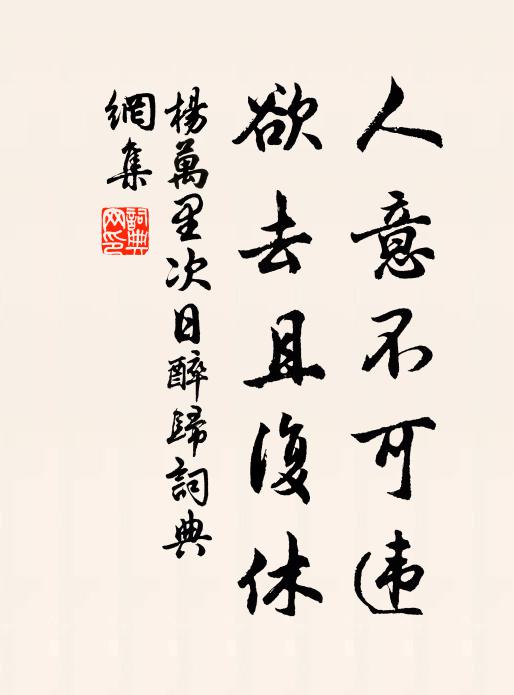 人意不可违
欲去且復休
楊萬里次日醉歸詞典
網集
詞典网印